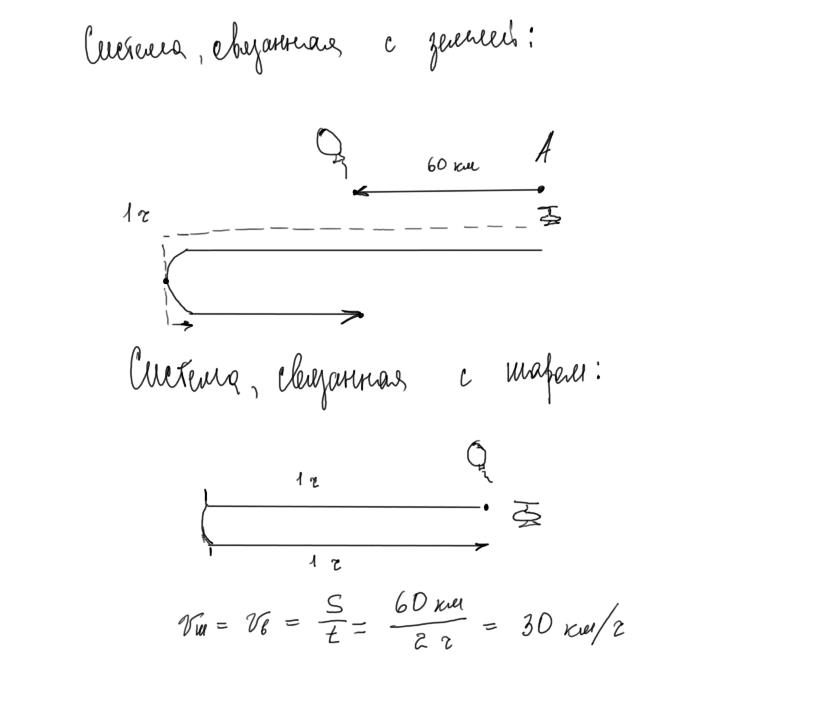 Система, связанная с землей:
A
60 км
1 ч
Система, связанная с шаром:
1 ч
1 ч
vш = vв = S/t = 60 км/2 ч = 30 км/ч